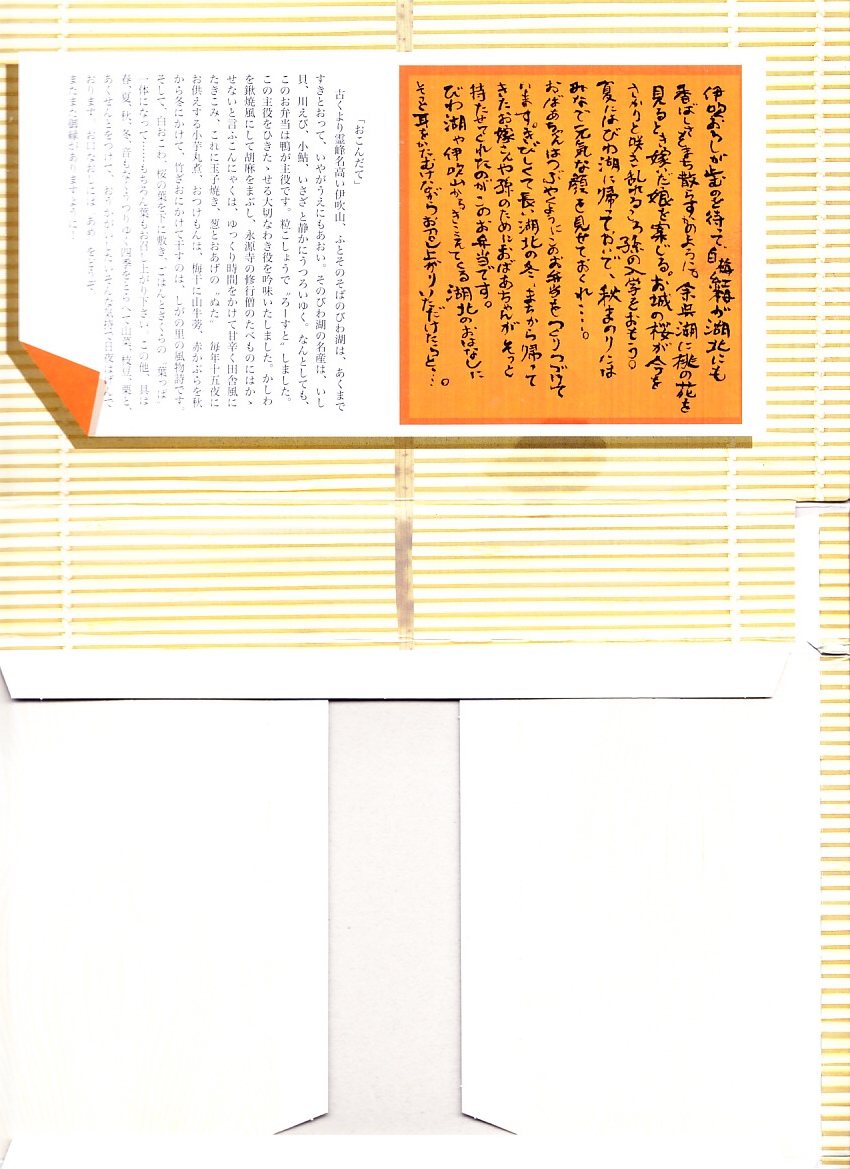 伊吹おろしが歯むのを待って、白梅紅梅が湖北にも
香ばしさをまち散らすかのように、余呉湖に桃の花を
見るとき嫁だ娘を案じる。お城の桜が今を
さかりと咲き乱れるころ孫の入学をおもう。
夏にはびわ湖に帰っておいで、秋まつりには
みなで元気な顔を見せておくれ……。
おばあちゃんはつぶやくようにこのお弁当をつくりつづけて
います。きびしくて長い湖北の冬、里から帰って
きたお嫁さんや孫のためにおばあちゃんがそっと
持たせてくれたのがこのお弁当です。
びわ湖や伊吹山からきこえてくる湖北のおはなしに
そっと耳をかたむけながらお召し上がりいただけたらと…。
「おこんだて」
古くより霊峰名高い伊吹山、ふとそのそばのびわ湖は、あくまで
すきとおって、いやがうえにもあおい。そのびわ湖の名産は、いし
貝、川えび、小鮎、いさざと静かにうつろいゆく。なんとしても、
このお弁当は鴨が主役です。粒こしょうで〝ろーすと〟しました。
この主役をひきたゝせる大切なわき役を吟味いたしました。かしわ
を鍬焼風にして胡麻をまぶし、永源寺の修行僧のたべものにはかゝ
せないと言ふこんにゃくは、ゆっくり時間をかけて甘辛く田舎風に
たきこみ、これに玉子焼き、葱とおあげの〝ぬた〟 毎年十五夜に
お供えする小芋丸煮、おつけもんは、梅干に山牛蒡、赤かぶらを秋
から冬にかけて、竹ざおにかけて干すのは、しがの里の風物詩です。
そして、白おこわ、桜の葉を下に敷き、ごはんとさくらの〝葉っぱ〟
一体になって……もちろん葉もお召し上がり下さい。この他、具は
春、夏、秋、冬、音もなくうつりゆく四季をとらへて山菜、枝豆、栗と、
あくせんとをつけて、おうかがいしたいそんな気持で日夜はげんで
おります。お口なおしには〝あめ〟をどうぞ。
またまた御縁がありますように！